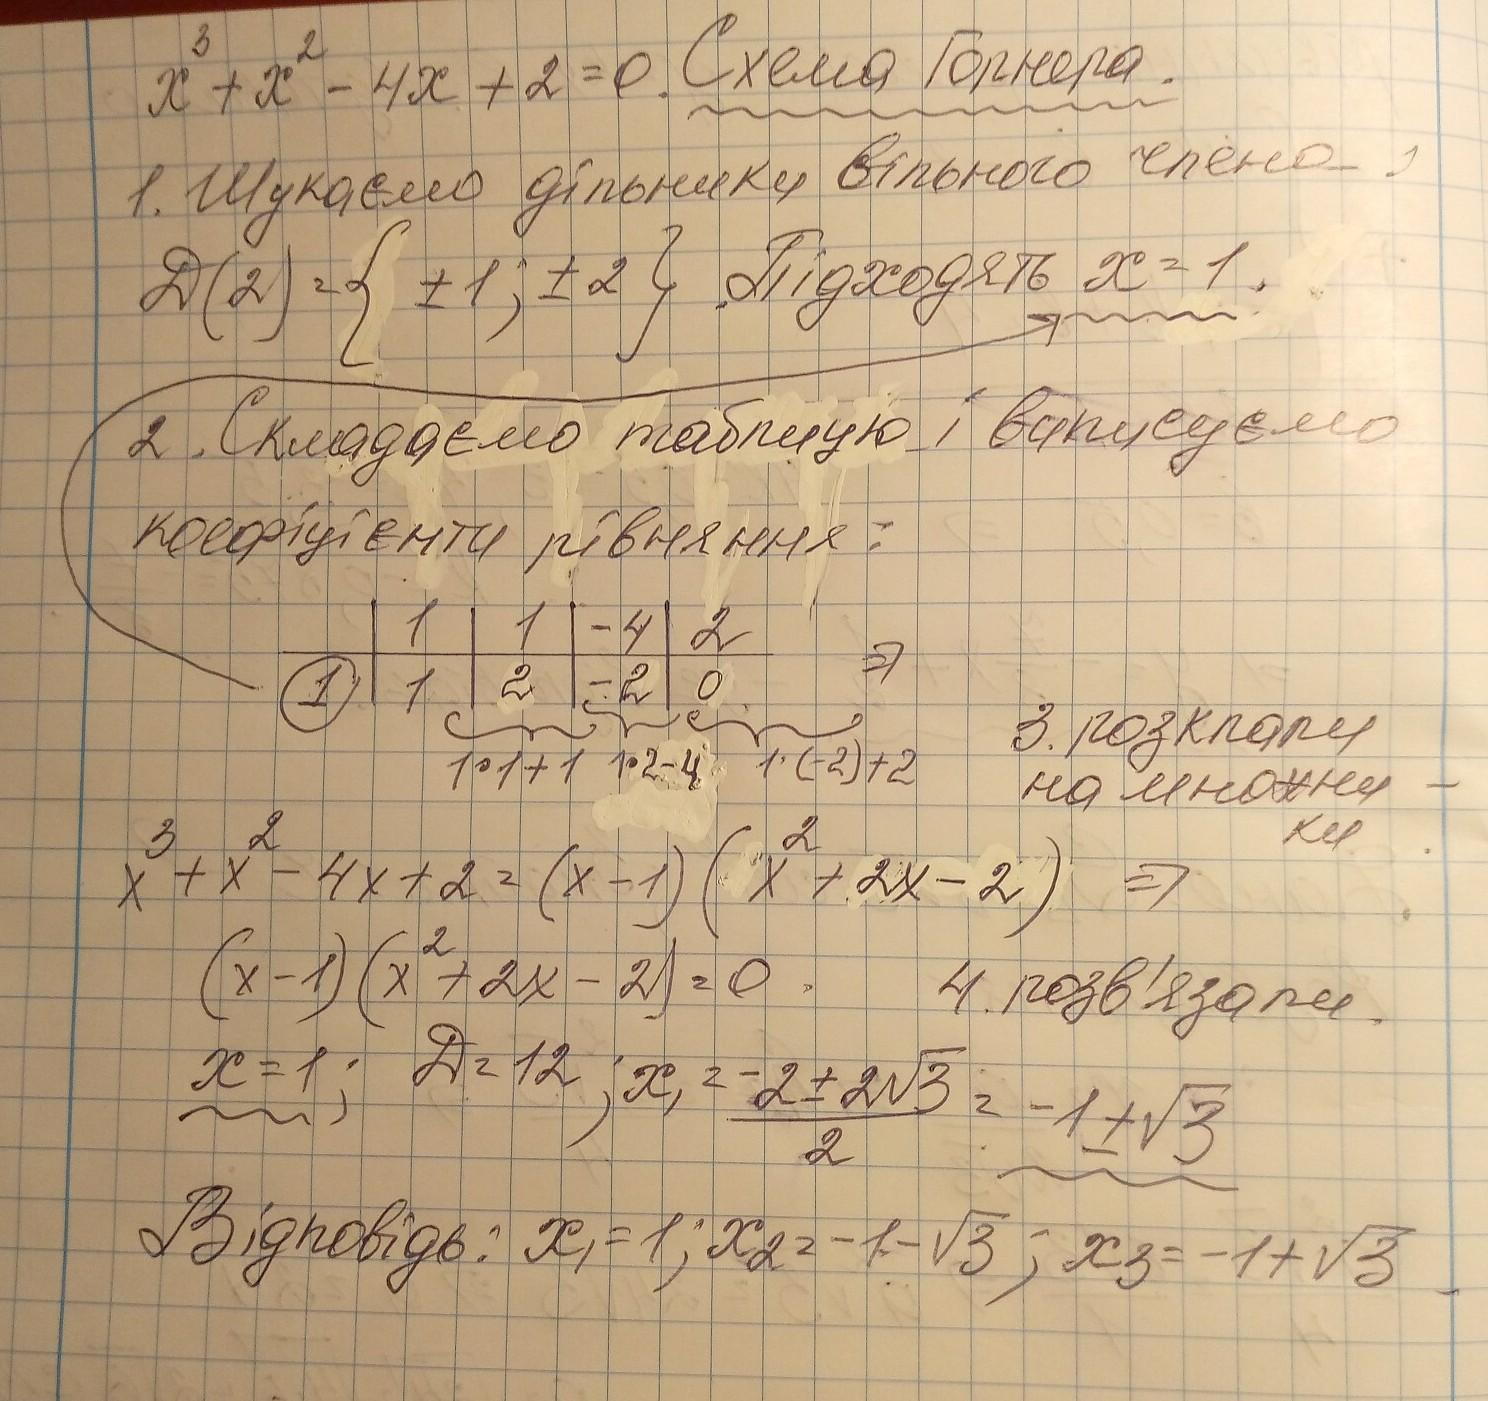 x³ + x² - 4x + 2 = 0. Схема Горнера.
1. Шукаємо дільники вільного члена:
D(2) = { ±1; ±2 }. Підходять x = 1.
2. Складаємо таблицю і виписуємо
коефіцієнти рівняння:
1 | 1 | -4 | 2
1 | 1 | 2 | -2 | 0 ⇒
1·1+1 1·2-4 1·(-2)+2
3. розклали
на множни-
ки
x³ + x² - 4x + 2 = (x-1)(x² + 2x - 2) ⇒
(x-1)(x² + 2x - 2) = 0. 4. розв'язали.
x = 1; D = 12; x, = (-2 ± 2√3)/2 = -1 ± √3
Відповідь: x₁ = 1; x₂ = -1 - √3; x₃ = -1 + √3.